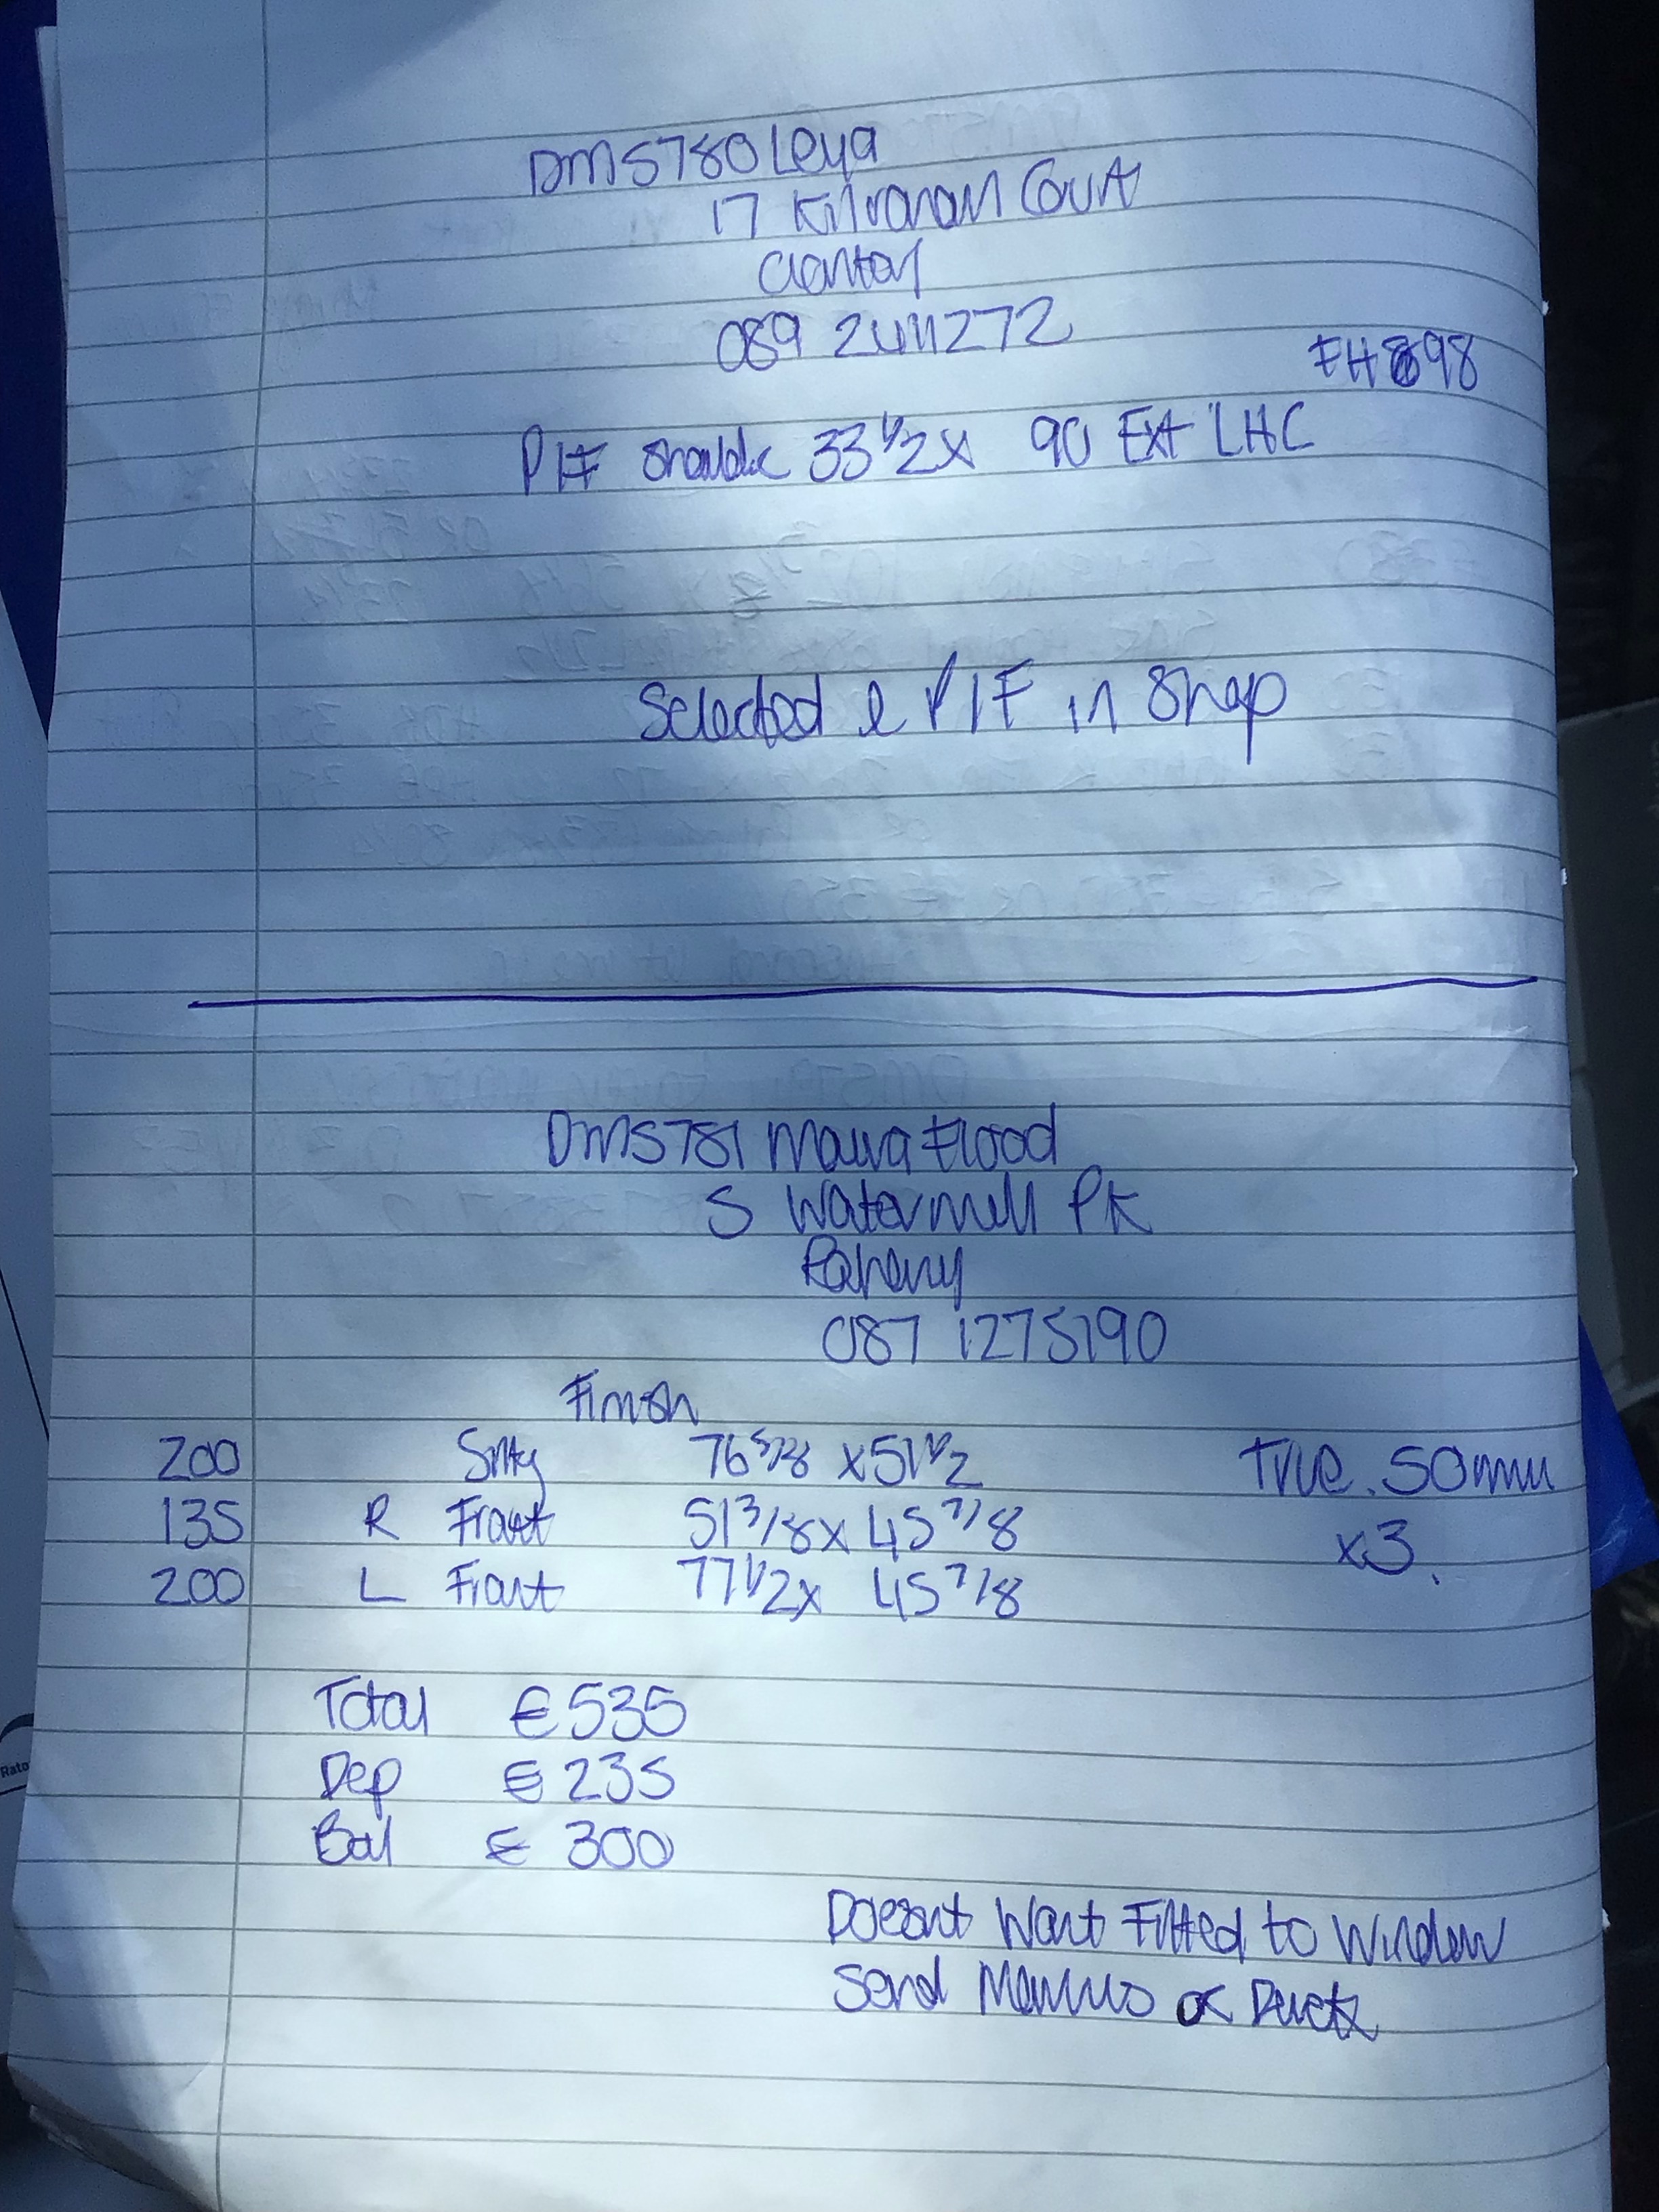 DM5780 Leya
17 Kilronan Court
Clontarf
089 2411272
FH898
PIF Should be 33 1/2 x 90 Ext LHC
Selected e PIF in Shop
DM5781 Maura Flood
5 Watermill PK
Raheny
087 1275190
Finish
200 Sittg 76 5/8 x 51 1/2 True. 50mm
135 R Front 51 3/8 x 45 7/8 x3.
200 L Front 77 1/2 x 45 7/8
Total € 535
Dep € 235
Bal € 300
Doesnt Want Fitted to Window
Send or
Rato